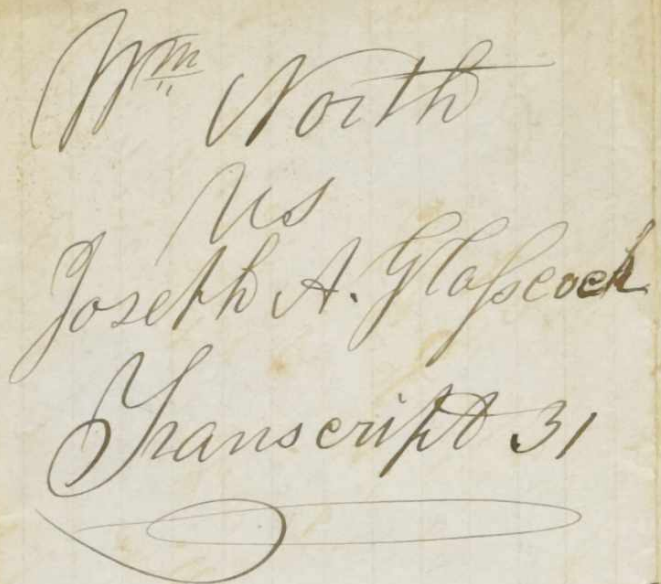 Wm North
vs
Joseph A. Glasscock
Transcript 31